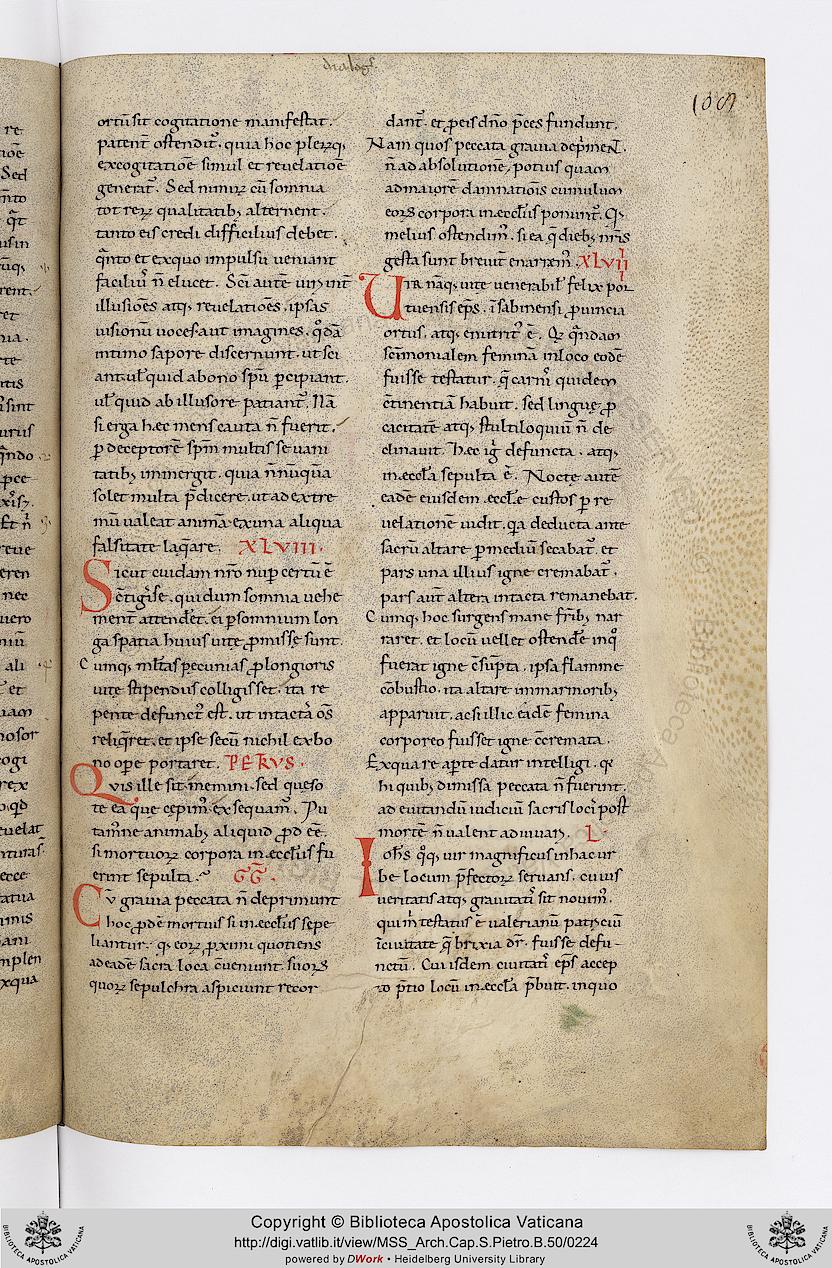 dialog͛
109
ortū sit cogitatione manifestat.
patent͛ ostendit͛. quia hoc plerūq;
ex cogitatiōe simul et reuelatiōe
generat͛. Sed nimirꝝ cū somnia
tot rerꝝ qualitatib; alternent.
tanto eis credi difficilius debet.
q̄nto et ex quo impulsu ueniant
facili᷒ n̄ elucet. Sc̄i autē uiri int͛
illusiōes atq; reuelatiōes. ipsas
uisionū uoces aut imagines. q̄dā
intimo sapore discernunt. ut sci
ant. ul̓ quid a bono sp̄u p̄cipiant.
ul̓ quid ab illusore patiant͛. Nā
si erga hęc mens cauta n̄ fuerit.
ꝑ deceptorē sp̄m multis se uani
tatib; inmergit. quia n̄nūquā
solet multa p̄dicere. ut ad extre
mū ualeat animā ex una aliqua
falsitate laq̄are. XLVIII.
Sicut cuidam nr̄o nuꝑ certū ē
c̄tigisse. qui dum somnia uehe
ment͛ attendet͛. ei ꝑ somnium lon
ga spatia huius uitę ꝓmisse sunt.
Cumq; ml̓tas pecunias ꝓ longioris
uitę stipendiis colligisset. ita re
pente defunct᷒ est. ut intactas om̄s
reliq̄ret. et ipse secū nichil ex bo
no oꝑe portaret. PETRVS.
Quis ille sit memini. sed queso
te ea que cepim᷒ exsequam͛. Pu
tam᷒ne animab; aliquid ꝓd eē.
si mortuorꝝ corpora in ęccl̓iis fu
erint sepulta. GG.
Cū grauia peccata n̄ deprimunt
hoc ꝓdē mortuis si in ęccl̓iis sepe
liantur. q̄ eorꝝ ꝓximi quotiens
ad eadē sacra loca c̄ueniunt. suorꝝ
quorꝝ sepulchra aspiciunt recor
dant͛. et ꝓ eis dn̄o p̄ces fundunt.
Nam quos peccata grauia dep̄ment.
n̄ ad absolutionē. potius quam
ad maiorē damnatiōis cumulum
eorꝝ corpora in ęccl̓iis ponunt͛. Q̄
melius ostendim᷒. si ea q̄ dieb; nr̄is
gesta sunt breuit͛ enarrem᷒. XLVIIII
Uir nāq; uitę uenerabil̓ felix por
tuensis ep̄s. ī sabinensi ꝓuincia
ortus. atq; enutrit᷒ ē. Q̄ q̄ndam
sc̄imonialem femina in loco eodē
fuisse testatur. q̄ carnis quidem
c̄tinentiā habuit. sed linguę ꝓ
cacitatē atq; stultiloquiū n̄ de
clinauit. Hęc ig̓ defuncta. atq;
in ęccl̓a sepulta ē. Nocte autē
eadē eiusdem ęccl̓ę custos ꝑ re
uelationē uidit. q̄a deducta ante
sacrū altare ꝑ mediū secabat͛. et
pars una illius igne cremabat͛.
pars aut̄ altera intacta remanebat.
Cumq; hoc surgens mane fr̄ib; nar
raret. et locū uellet ostendere in q᷒
fuerat igne c̄supta. ipsa flamme
cōbustio. ita altare in marmorib;
apparuit. ac si illic eadē femina
corporeo fuisset igne c̄cremata.
Ex qua re aꝑte datur intelligi. q̄
hi quib; dimissa peccata n̄ fuerint.
ad euitandū iudiciū sacris locis post
mortē n̄ ualent adiuuari. L
Ioh̄s q̄q; uir magnificus in hac ur
be locum p̄fectorꝝ seruans. cuius
ueritatis atq; grauitatis sit nouim᷒.
qui m͛ testatus ē ualerianū patriciū
ī ciuitate q̄ brixia dr̄. fuisse defu-
nctū. Cui isdem ciuitatis ep̄s accep
to p̄tio locū in ęccl̓a p̄buit. in quo
Copyright © Biblioteca Apostolica Vaticana
http://digi.vatlib.it/view/MSS_Arch.Cap.S.Pietro.B.50/0224
powered by DWork • Heidelberg University Library